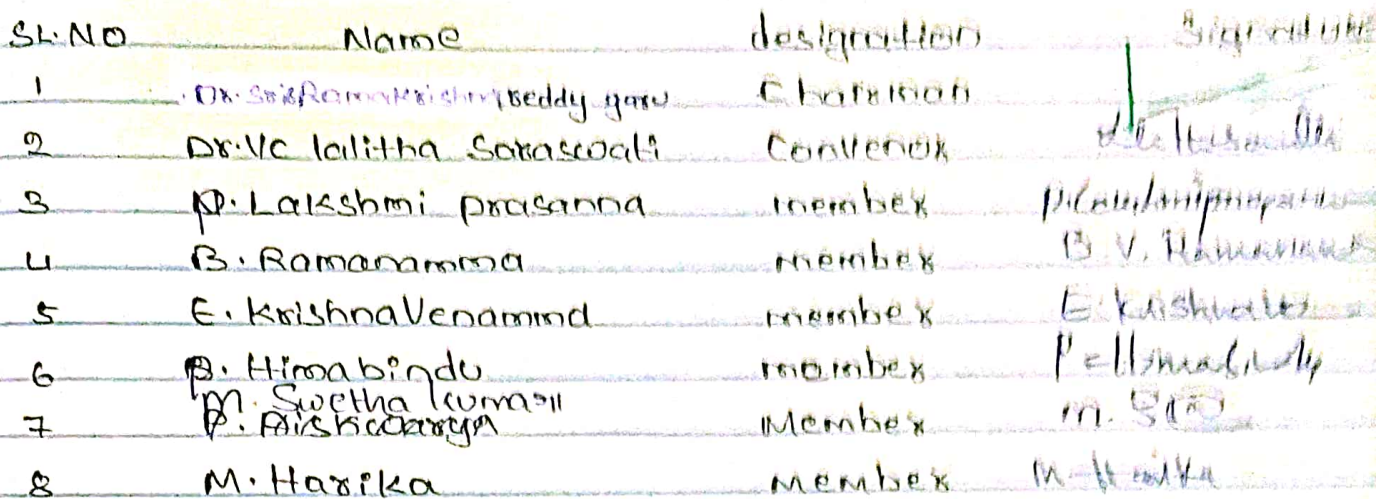 SL.NO Name designation Signature
1 Dr. Sri Ramakrishna Reddy garu Chairman
2 Dr.VC lalitha Saraswati Convenor
3 P. Lakshmi prasanna member
4 B. Ramanamma member B.V. Ramanamma
5 E. KrishnaVenamma member
6 P. Himabindu member
M. Swetha kumari
7 P. Aishwarya Member M.
8 M. Harika Member M. Harika